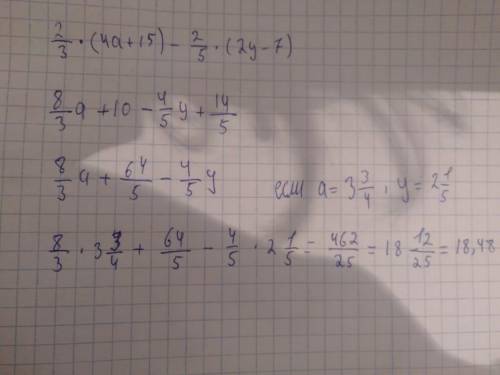 2/3 · (4a+15) − 2/5 · (2y−7)
8/3 a + 10 − 4/5 y + 14/5
8/3 a + 64/5 − 4/5 y    если a = 3 3/4, y = 2 1/5
8/3 · 3 3/4 + 64/5 − 4/5 · 2 1/5 = 462/25 = 18 12/25 = 18,48